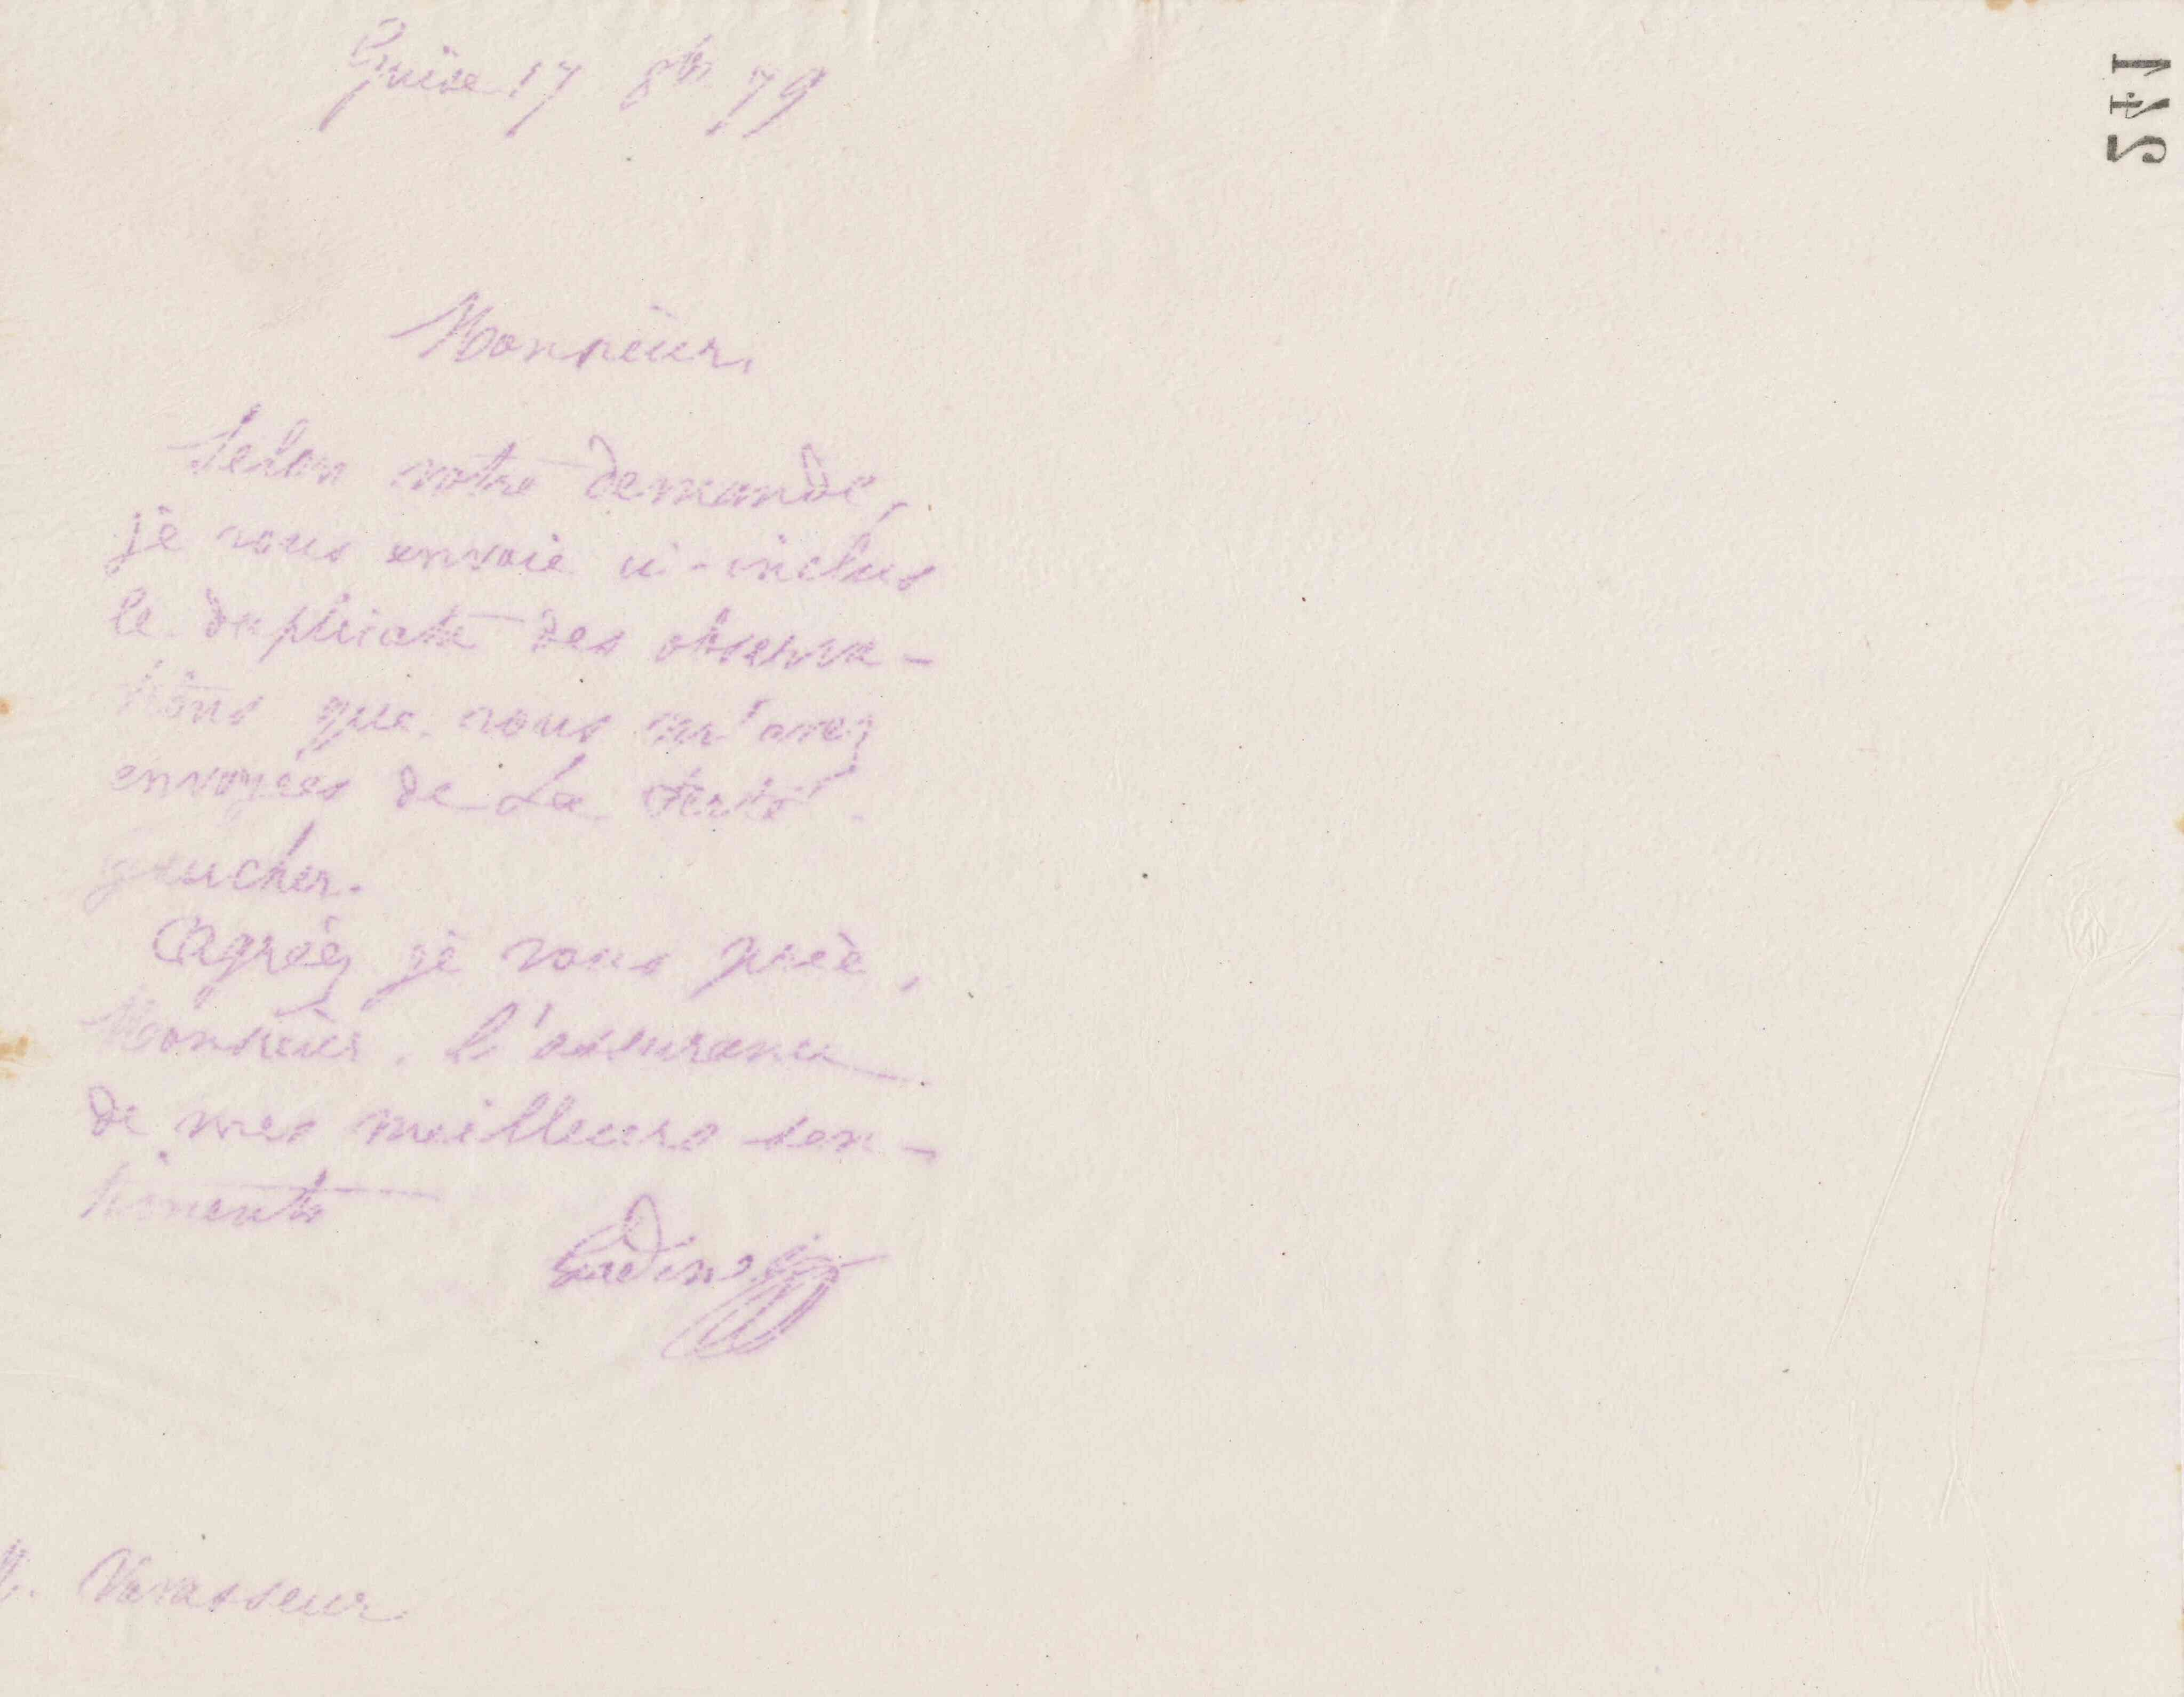 Guise 17 8bre 79
Monsieur,
Selon votre demande,
je vous envoie ci-inclus
le duplicata des observa-
tions que vous m'avez
envoyées de La Ferté
gaucher.
Agréez je vous prie,
Monsieur, l'assurance
de mes meilleurs sen-
timents
Godin
M. Vavasseur
142